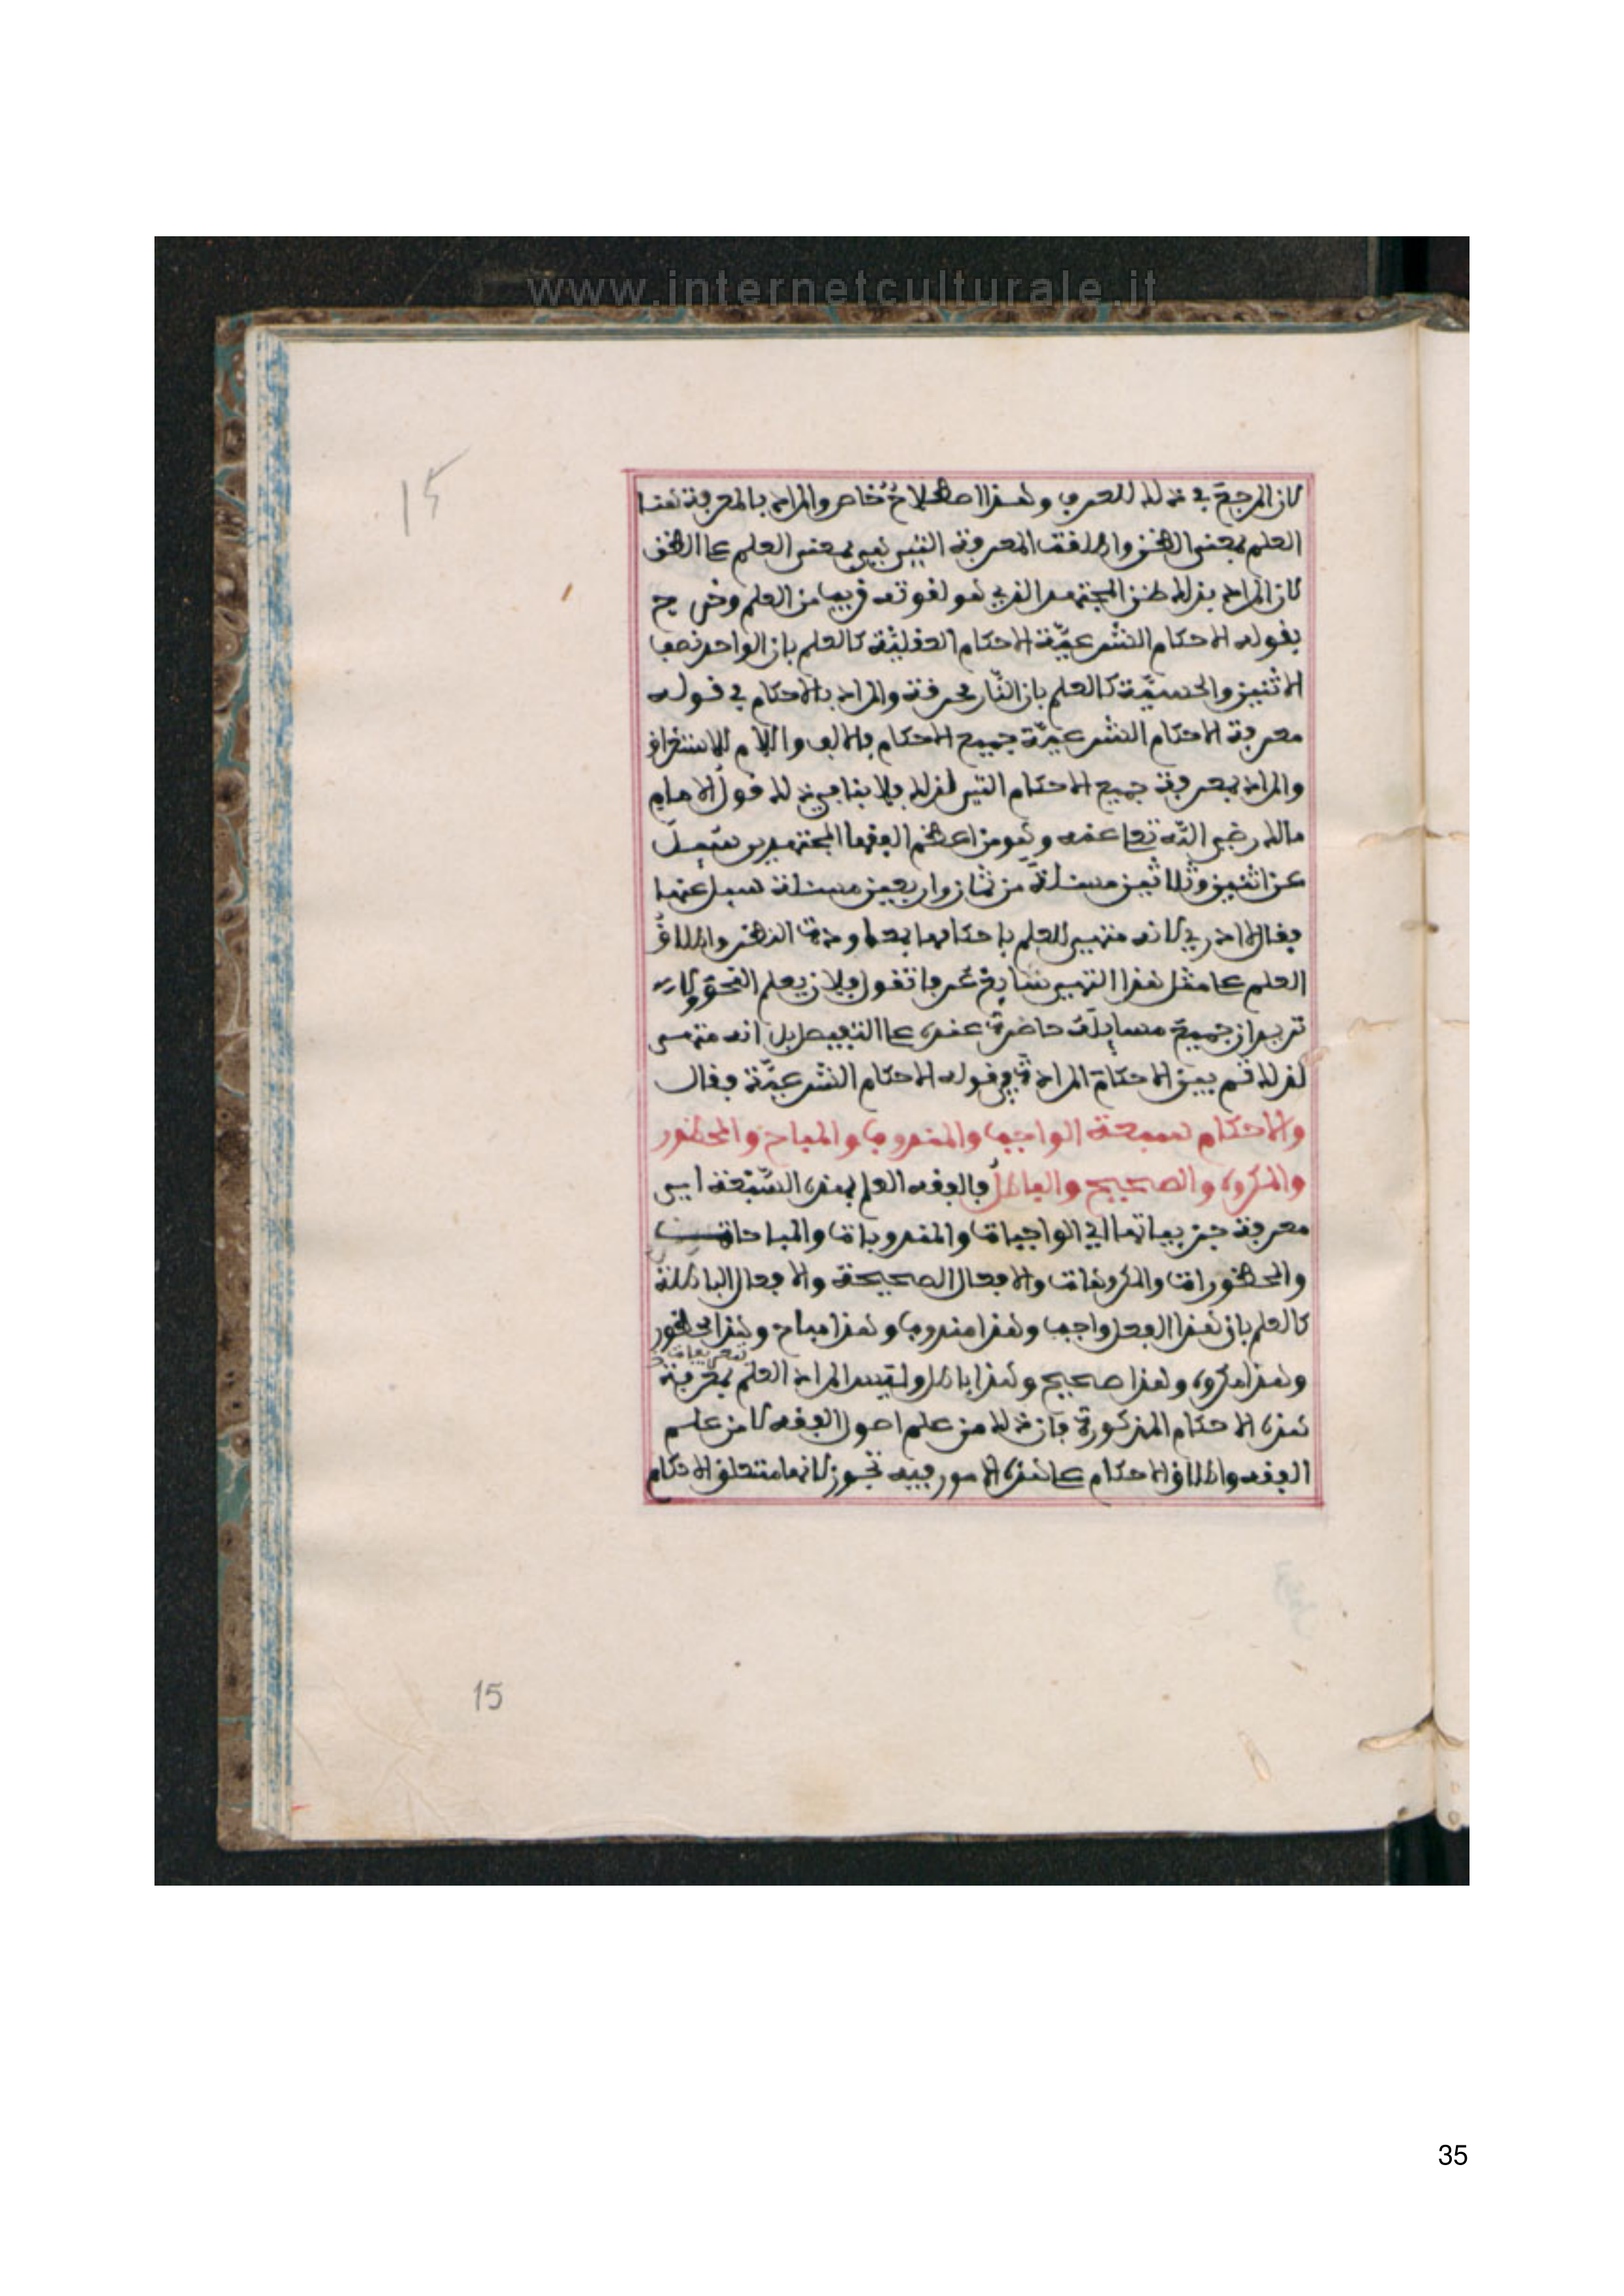 www.internetculturale.it
15
لان المرجع في ذلك للعرف وهذا اصطلاح خاص والمراد بالمعرفة هنا
العلم بمعنى الظن واطلقت المعرفة التي هي بمعنى العلم على الظن
لان المراد بذلك ظن المجتهد الذي هو لقوته قريب من العلم وخرج
بقوله الاحكام الشرعيّة الاحكام العقليّة كالعلم بان الواحد نصف
الاثنين والحسيّة كالعلم بان النّار محرقة والمراد بالاحكام في قوله
معرفة الاحكام الشرعيّة جميع الاحكام فالالف واللام للاستغراق
والمراد بمعرفة جميع الاحكام التهيئ لذلك فلا ينافي ذلك قول الامام
مالك رضي اللّه تعلى عنه وهو من اعظم الفقها المجتهدين سئل
عن اثنين وثلاثين مسئلة من ثمان واربعين مسئلة سيل عنها
فقال لا ادري لانه متهيئ للعلم باحكامها بمعاودة النظر واطلاق
العلم على مثل هذا التهيئ شايع عرفا تقول فلان يعلم النحو ولا
تريد ان جميع مسايله حاضرة عنده على التفصيل بل انه متهيئ
لذلك ثم بين الاحكام المرادة في قوله الاحكام الشرعيّة فقال
والاحكام سبعة الواجب والمندوب والمباح والمحظور
والمكروه والصحيح والباطل فالفقه العلم بهذه السّبعة اي
معرفة جزيياتها اي الواجبات والمندوبات والمباحات
والمحظورات والمكروهات والافعال الصحيحة والافعال الباطلة
كالعلم بان هذا الفعل واجب وهذا مندوب وهذا مباح وهذا محظور
تعريفات
وهذا مكروه وهذا صحيح وهذا باطل وليس المراد العلم بمعرفة
هذه الاحكام المذكورة فان ذلك من علم اصول الفقه لا من علم
الفقه واطلاق الاحكام على هذه الامور فيه تجوز لانها متعلق الاحكام
15
35